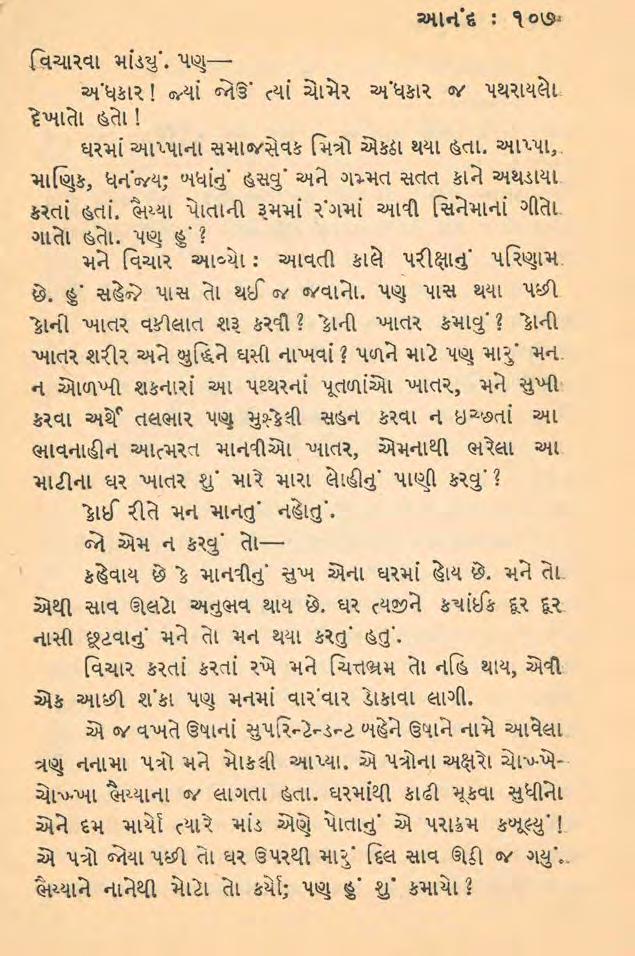 આનંદ : ૧૦૭
વિચારવા માંડયું. પણ—
અંધકાર! જ્યાં જોઉં ત્યાં ચોમેર અંધકાર જ પથરાયલો
દેખાતો હતો!
ઘરમાં આપ્પાના સમાજસેવક મિત્રો એકઠા થયા હતા. આપ્પા,
માણિક, ધનંજય; બધાંનું હસવું અને ગમ્મત સતત કાને અથડાયા
કરતાં હતાં. ભૈય્યા પોતાની રૂમમાં રંગમાં આવી સિનેમાનાં ગીતો
ગાતો હતો. પણ હું?
મને વિચાર આવ્યો : આવતી કાલે પરીક્ષાનું પરિણામ
છે. હું સહેજે પાસ તો થઈ જ જવાનો. પણ પાસ થયા પછી
કોની ખાતર વકીલાત શરૂ કરવી? કોની ખાતર કમાવું? કોની
ખાતર શરીર અને બુદ્ધિને ઘસી નાખવાં? પળને માટે પણ મારું મન
ન ઓળખી શકનારાં આ પથ્થરનાં પૂતળાંઓ ખાતર, મને સુખી
કરવા અર્થે તલભાર પણ મુશ્કેલી સહન કરવા ન ઇચ્છતાં આ
ભાવનાહીન આત્મરત માનવીઓ ખાતર, એમનાથી ભરેલા આ
માટીના ઘર ખાતર શું મારે મારા લોહીનું પાણી કરવું?
કોઈ રીતે મન માનતું નહોતું.
જો એમ ન કરવું તો—
કહેવાય છે કે માનવીનું સુખ એના ઘરમાં હોય છે. મને તો
એથી સાવ ઊલટો અનુભવ થાય છે. ઘર ત્યજીને કયાંઈક દૂર દૂર
નાસી છૂટવાનું મને તો મન થયા કરતું હતું.
વિચાર કરતાં કરતાં રખે મને ચિત્તભ્રમ તો નહિ થાય, એવી
એક આછી શંકા પણ મનમાં વારંવાર ડોકાવા લાગી.
એ જ વખતે ઉષાનાં સુપરિન્ટેન્ડન્ટ બહેને ઉષાને નામે આવેલા
ત્રણ નનામા પત્રો મને મોકલી આપ્યા. એ પત્રોના અક્ષરો ચોખ્ખે-
ચોખ્ખા ભૈય્યાના જ લાગતા હતા. ઘરમાંથી કાઢી મૂકવા સુધીનો
એને દમ માર્યો ત્યારે માંડ એણે પોતાનું એ પરાક્રમ કબૂલ્યું!
એ પત્રો જોયા પછી તો ઘર ઉપરથી મારું દિલ સાવ ઊઠી જ ગયું.
ભૈય્યાને નાનેથી મોટો તો કર્યો; પણ હું શું કમાયો?